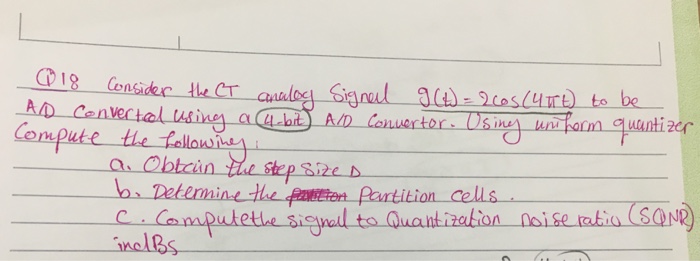 Q18 Consider the CT analog Signal g(t) = 2cos(4πt) to be
A/D Converted using a 4-bit A/D Convertor. Using uniform quantizer
Compute the following:
a. Obtain the step size D
b. Determine the partition cells.
c. Compute the signal to Quantization noise ratio (SQNR)
in dBs